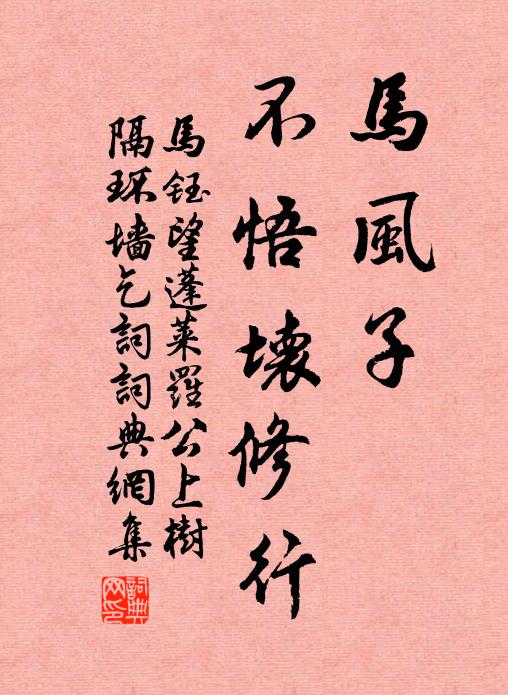 馬風子
不悟壞修行
馬鈺望蓬萊羅公上樹
隔环墙乞詞詞典網集
詞典網印